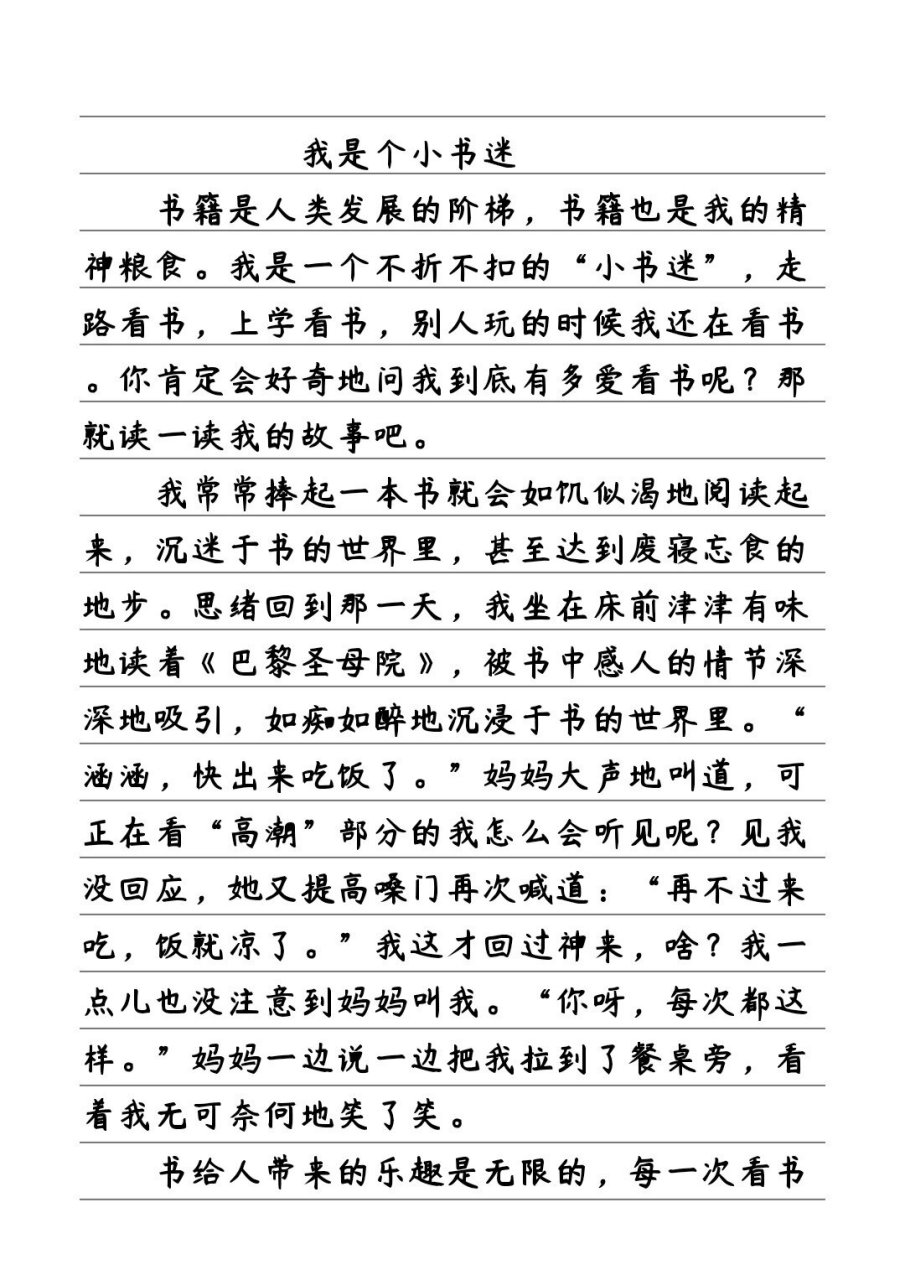 我是个小书迷
书籍是人类发展的阶梯，书籍也是我的精
神粮食。我是一个不折不扣的“小书迷”，走
路看书，上学看书，别人玩的时候我还在看书
。你肯定会好奇地问我到底有多爱看书呢？那
就读一读我的故事吧。
我常常捧起一本书就会如饥似渴地阅读起
来，沉迷于书的世界里，甚至达到废寝忘食的
地步。思绪回到那一天，我坐在床前津津有味
地读着《巴黎圣母院》，被书中感人的情节深
深地吸引，如痴如醉地沉浸于书的世界里。“
涵涵，快出来吃饭了。”妈妈大声地叫道，可
正在看“高潮”部分的我怎么会听见呢？见我
没回应，她又提高嗓门再次喊道：“再不过来
吃，饭就凉了。”我这才回过神来，啥？我一
点儿也没注意到妈妈叫我。“你呀，每次都这
样。”妈妈一边说一边把我拉到了餐桌旁，看
着我无可奈何地笑了笑。
书给人带来的乐趣是无限的，每一次看书